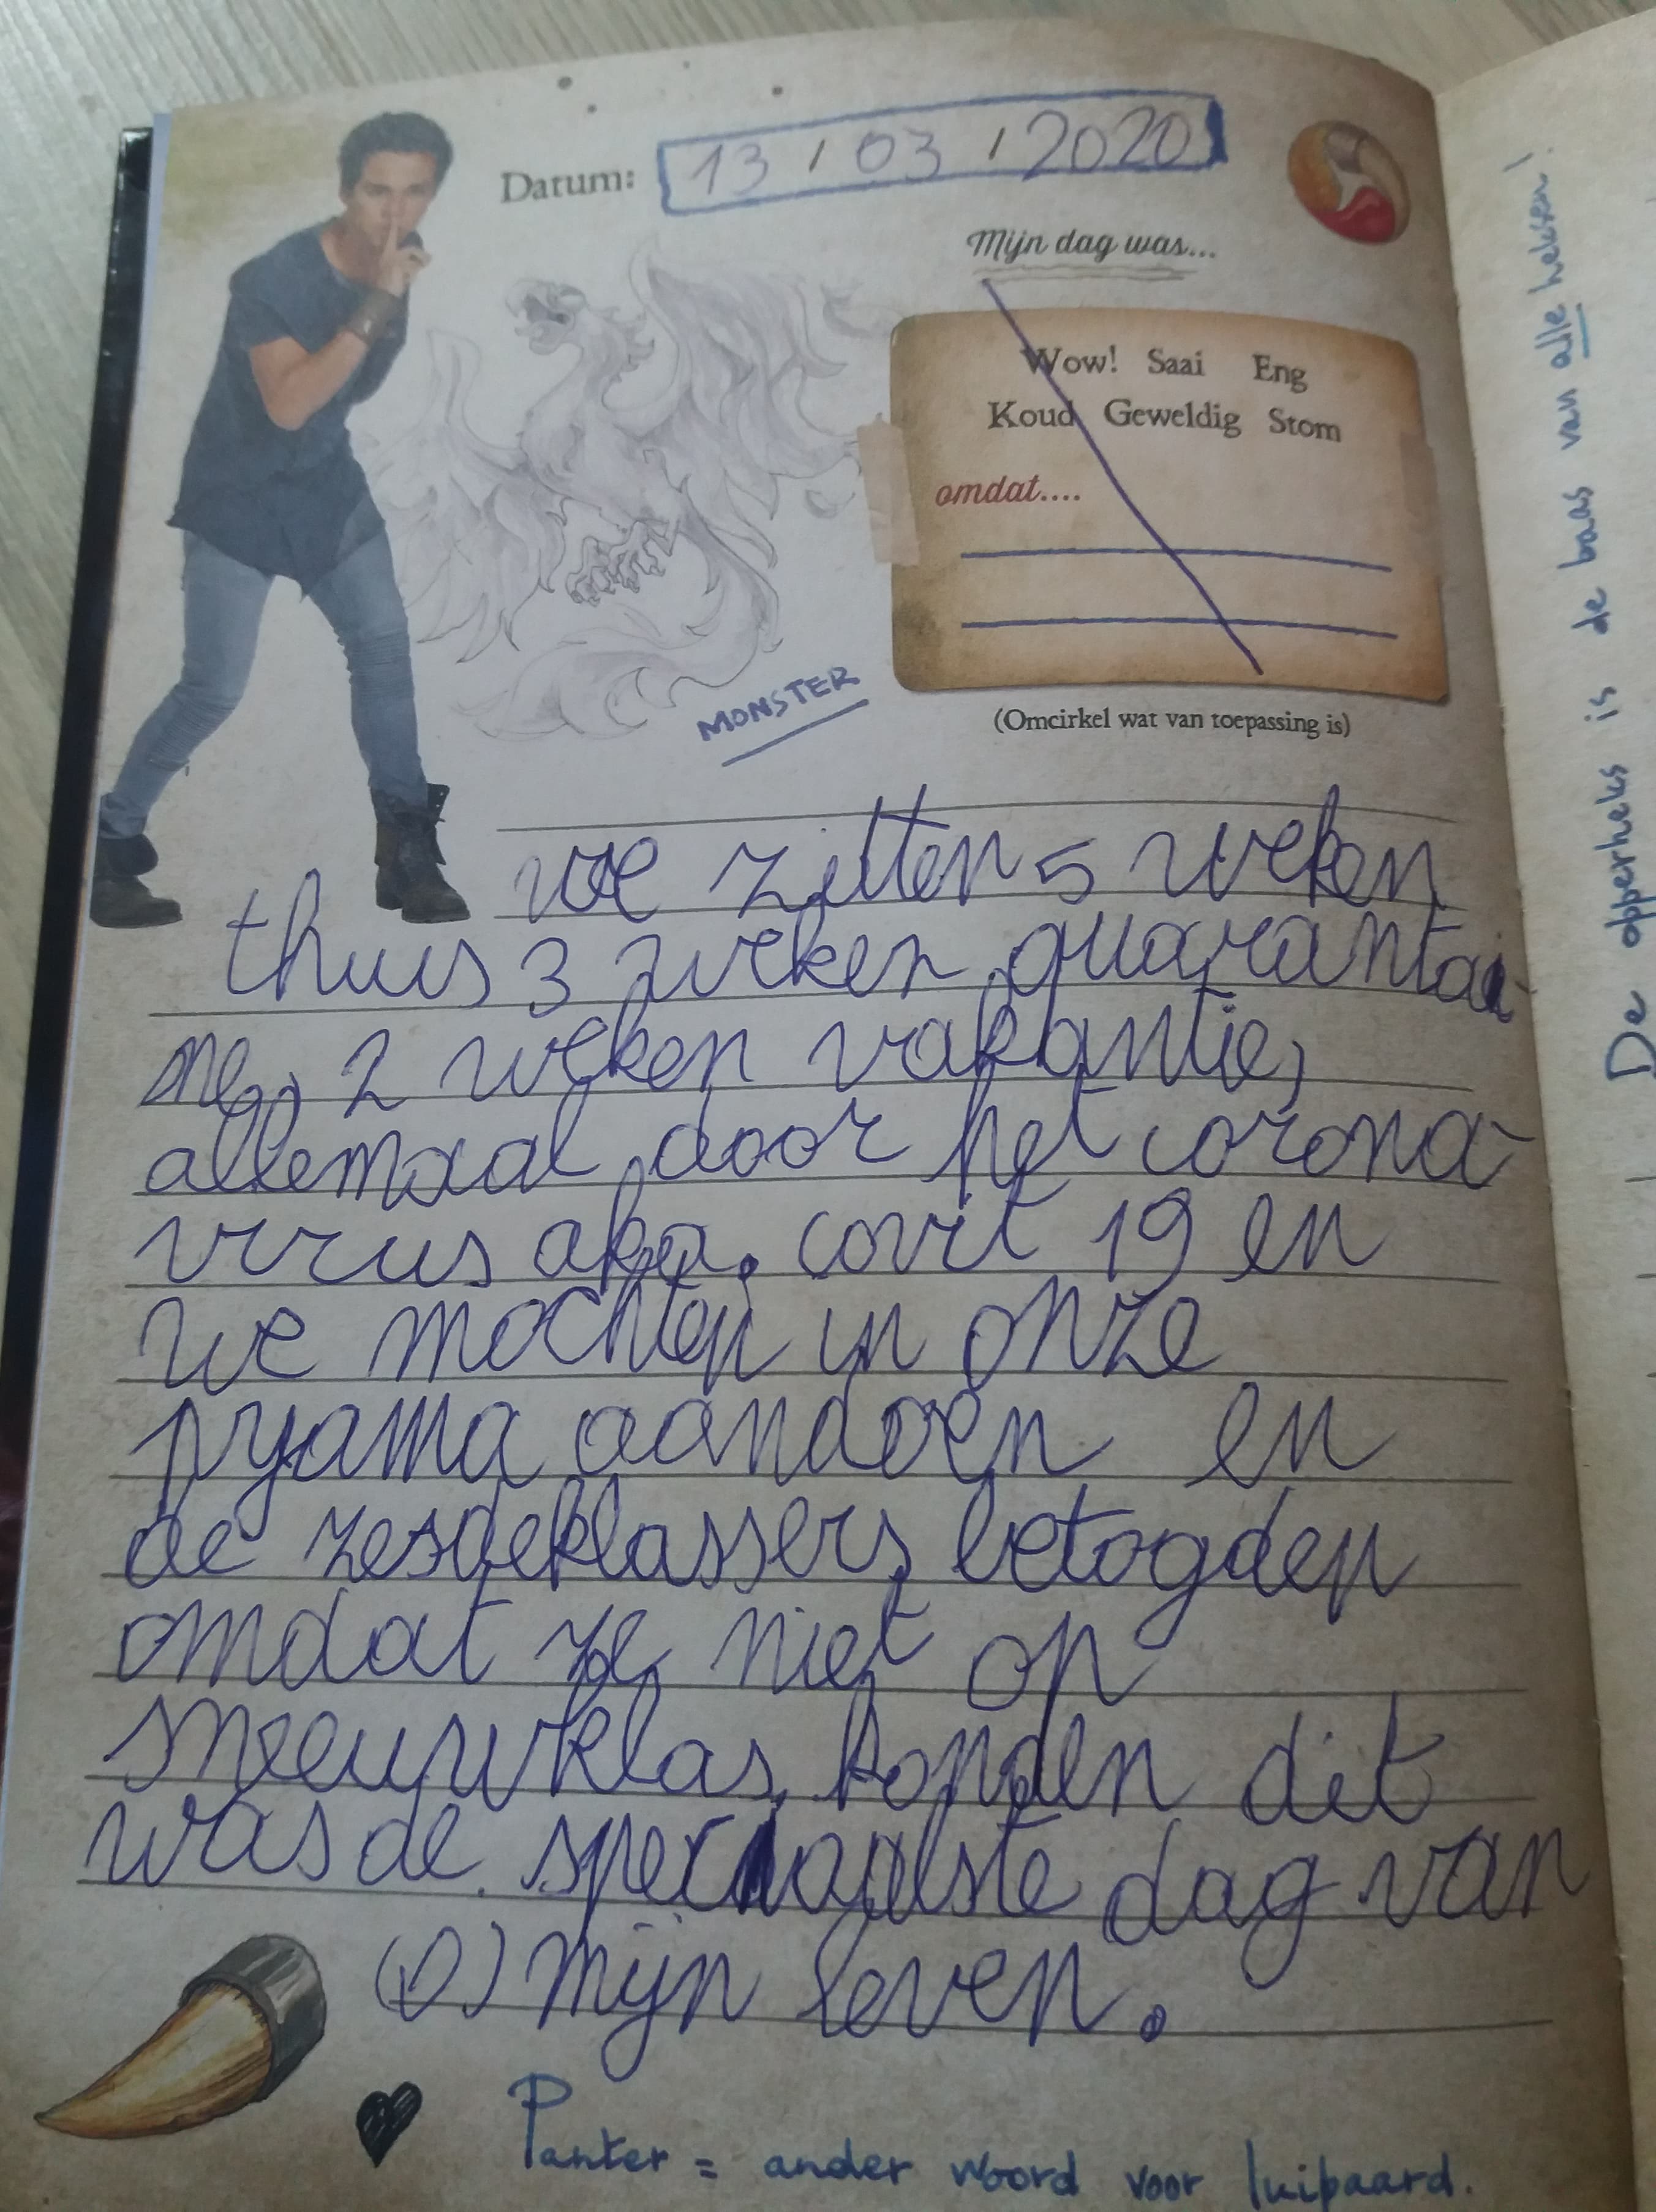 Datum: 13 / 03 / 2020
Mijn dag was...
Wow! Saai Eng
Koud Geweldig Stom
omdat....
(Omcirkel wat van toepassing is)
MONSTER
we zitten 5 weken
thuis 3 weken quarantai-
ne, 2 weken vakantie,
allemaal door het corona-
virus aka. covit 19 en
we mochten in onze
pyjama aandoen en
de zesdeklassers betogden
omdat ze niet op
sneeuwklas konden dit
was de speciaalste dag van
(D) mijn leven.
Panter = ander woord voor luipaard.
De opperheks is de baas van alle heksen!